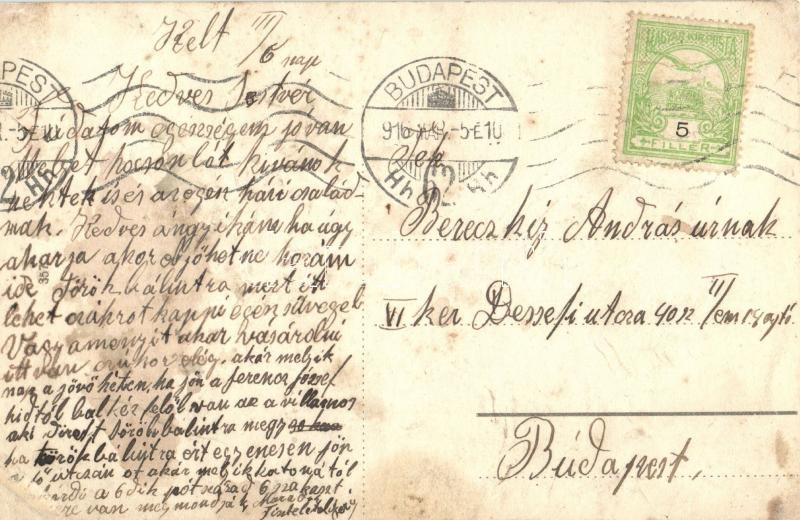 Kelt III/6 nap
Kedves Testvér
Tudatom egességem jo van
melyet hocson lót kivánok
nektek is és az egen házi család
mak. Kedves ángyikám ha úgy
akarja akor eljöhetne hozám
ide Török bálintra mert itt
lehet cukrot kappi egész süvegel
Vagy amenyit akar vasárolni
itt van cukor elég, akár melyik
nap a jövő héten, ha jön a ferencz József
hidtól bal kéz felöl van az a villagnos
aki direst Törökbálintra megy
ha törökbálintra ért egyenesen jön
fő utczán ot akár melyik katonától
a 6dik pótszázad 6 szakaszt
van meg mondják Maradok
Tisztelettel
BUDAPEST
916 -5E10
72
Hh
BUDAPEST
MAGYAR KIR. POSTA
5
FILLÉR
Bereczkiz András úrnak
VI ker Dessefi utcza 40sz III/em 19 ajtó
Búdapest,